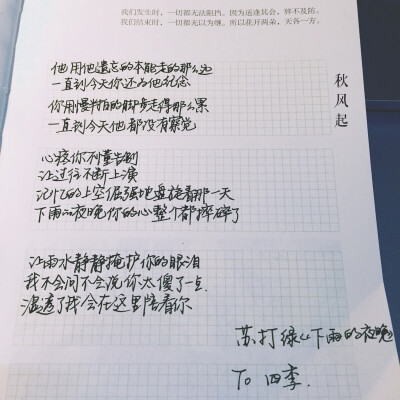 我们发生时，一切都无法阻挡。因为适逢其会，猝不及防。
我们结束时，一切都无以为继。所以花开两朵，天各一方。
秋风起
他用他遗忘的本能走的那么远
一直到今天你还为他纪念
你用慢半拍的脚步走得那么累
一直到今天他都没有察觉
心疼你不懂告别
让过往不断上演
记忆的上空倔强地盘旋着那一天
下雨的夜晚你的心整个都摔碎了
让雨水静静掩护你的眼泪
我不会问不会说你太傻了一点
湿透了我会在这里陪着你
苏打绿《下雨的夜晚
To 四李.